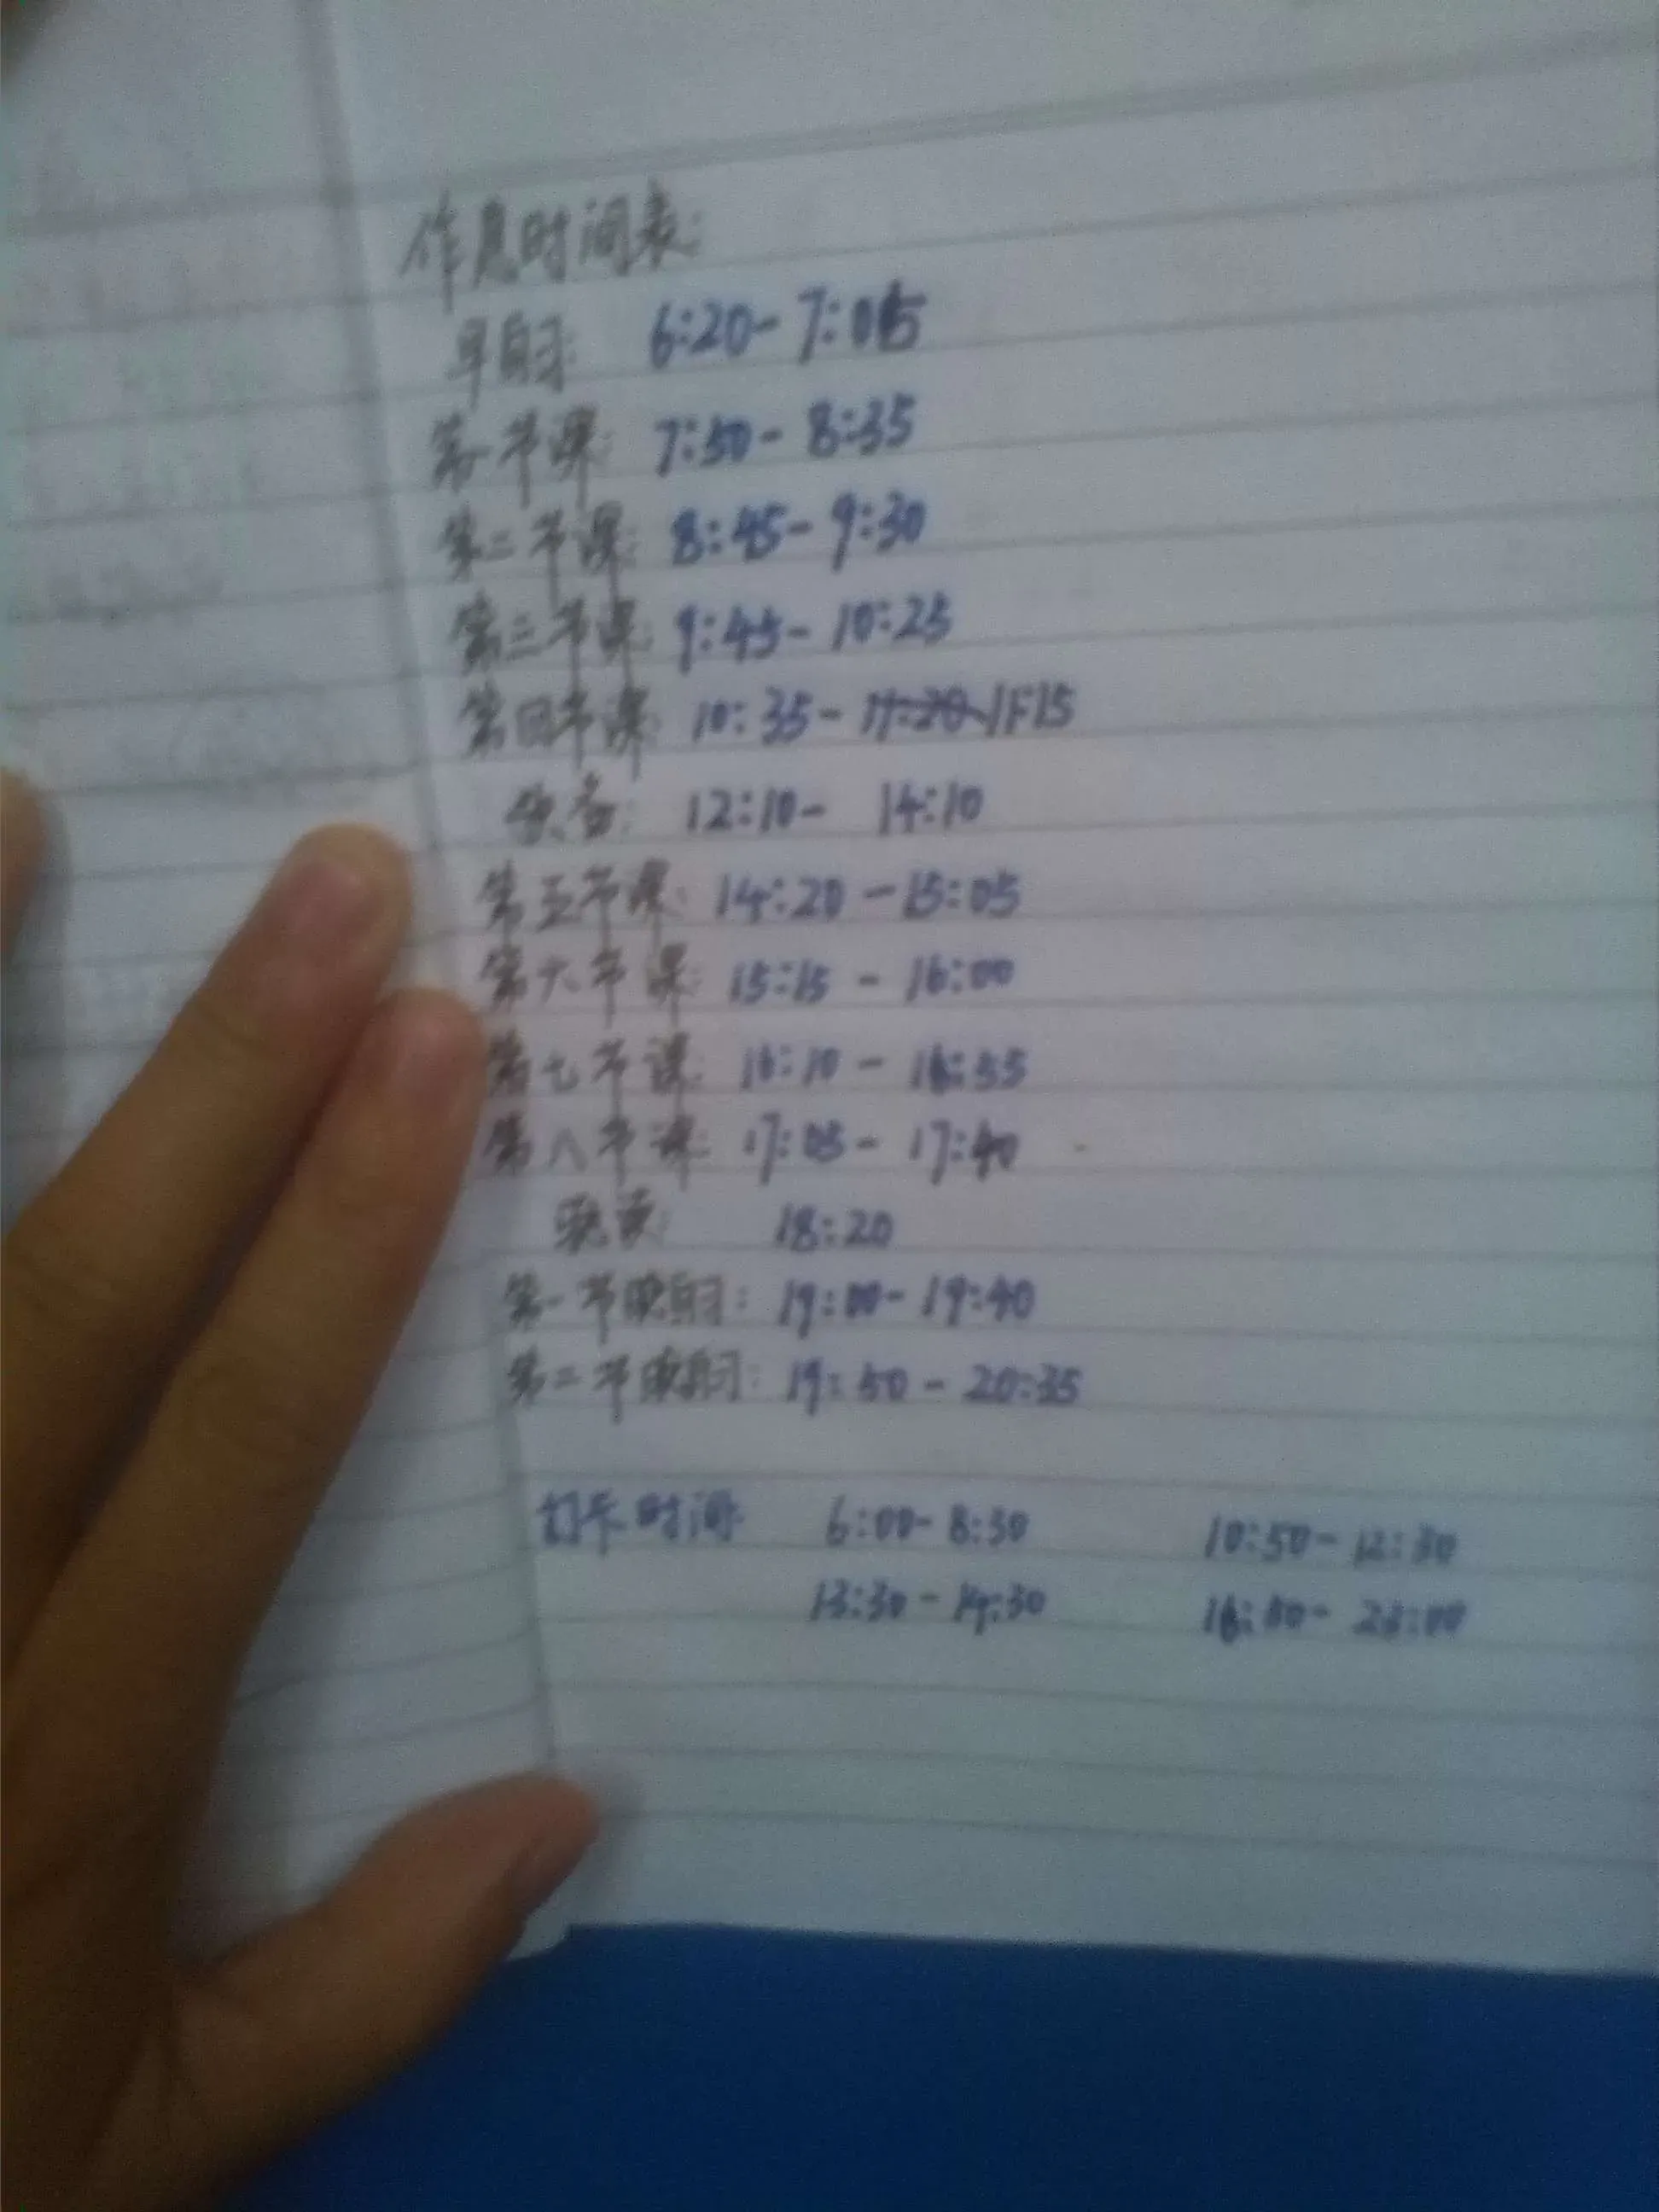 作息时间表:
早自习: 6:20-7:05
第一节课: 7:50-8:35
第二节课: 8:45-9:30
第三节课: 9:45-10:25
第四节课: 10:35-11:20 11:15
12:10- 14:10
第五节课: 14:20-15:05
第六节课: 15:15-16:00
第七节课: 16:10-16:55
第八节课: 17:05-17:40
晚读: 18:20
第一节晚自习: 19:00-19:40
第二节晚自习: 19:50-20:35
打卡时间 6:00-8:30 10:50-12:30
13:30-14:30 16:50-23:00